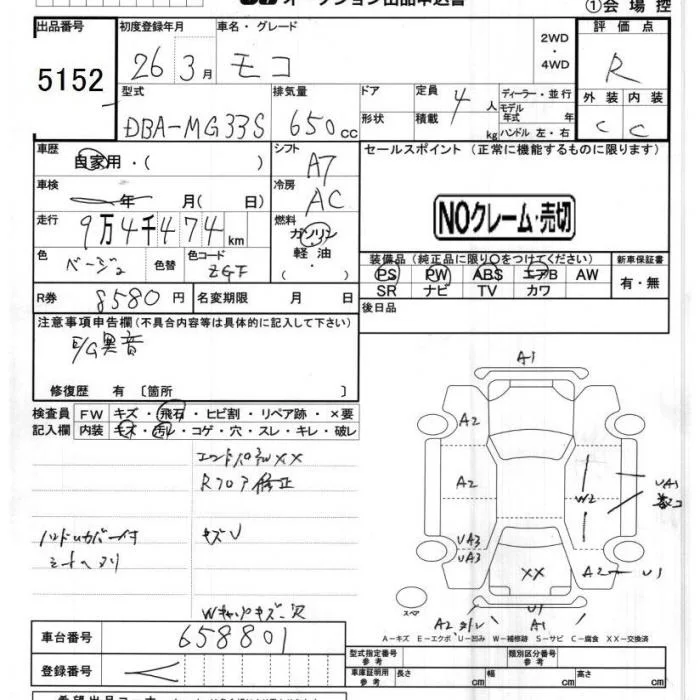 オークション出品申込書
①会場控
出品番号
5152
初度登録年月
26 3月
車名・グレード
モコ
2WD
・
4WD
評価点
R
型式
DBA-MG33S
排気量
650cc
ドア
形状
定員 4人
積載 kg
ディーラー・並行
モデル
年式 年
ハンドル 左・右
外装 内装
C C
車歴
自家用・( )
シフト
A7
セールスポイント(正常に機能するものに限ります)
車検
年 月( 日)
冷房
AC
NOクレーム・売切
走行
9万4千474km
燃料
ガソリン
軽油
( ・ )
色
ベージュ
色替
色コード
ZGF
装備品(純正品に限り○をつけてください)
PS PW ABS エアB AW
SR ナビ TV カワ
新車保証書
有・無
R券 8580円
名変期限 月 日
後日品
注意事項申告欄(不具合内容等は具体的に記入して下さい)
E/G異音
修復歴 有〔箇所 〕
検査員
記入欄
FW キズ・飛石・ヒビ割・リペア跡・×要
内装 キズ・汚レ・コゲ・穴・スレ・キレ・破レ
エンドパネルXX
Rフロア修正
ハンドルカバー付
シートヘタリ
キズU
A1
A2
A2
W2
UA1
UA3
UA3
XX
A2
U1
U1
A2
A1
スペア
A-キズ E-エクボ U-凹み W-補修跡 S-サビ C-腐食 XX-交換済
車台番号
658801
登録番号
型式指定番号
参考
類別区分番号
参考
車庫証明用
参考
長さ cm 幅 cm 高さ cm